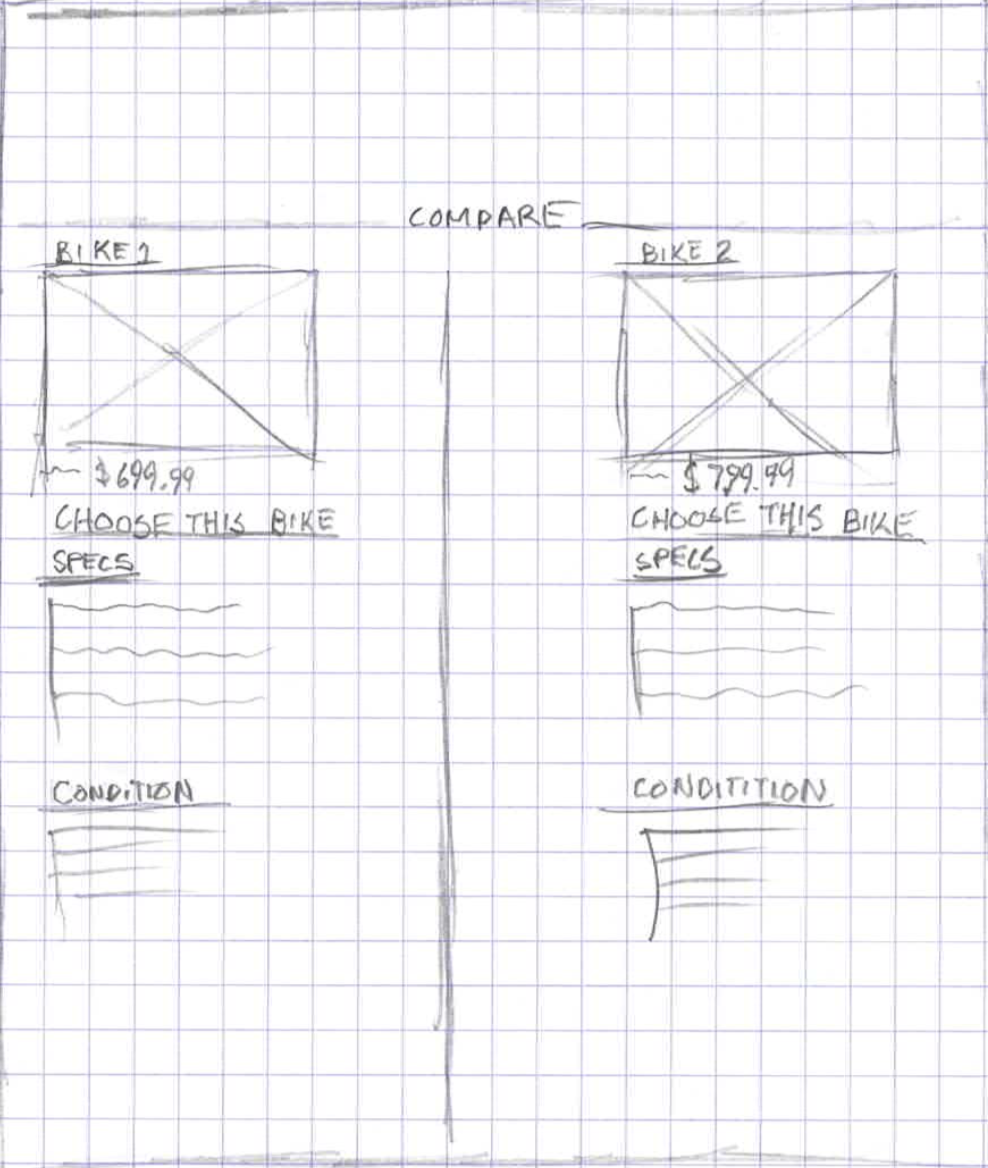 COMPARE
BIKE 1
$699.99
CHOOSE THIS BIKE
SPECS
CONDITION
BIKE 2
$799.99
CHOOSE THIS BIKE
SPECS
CONDITITION